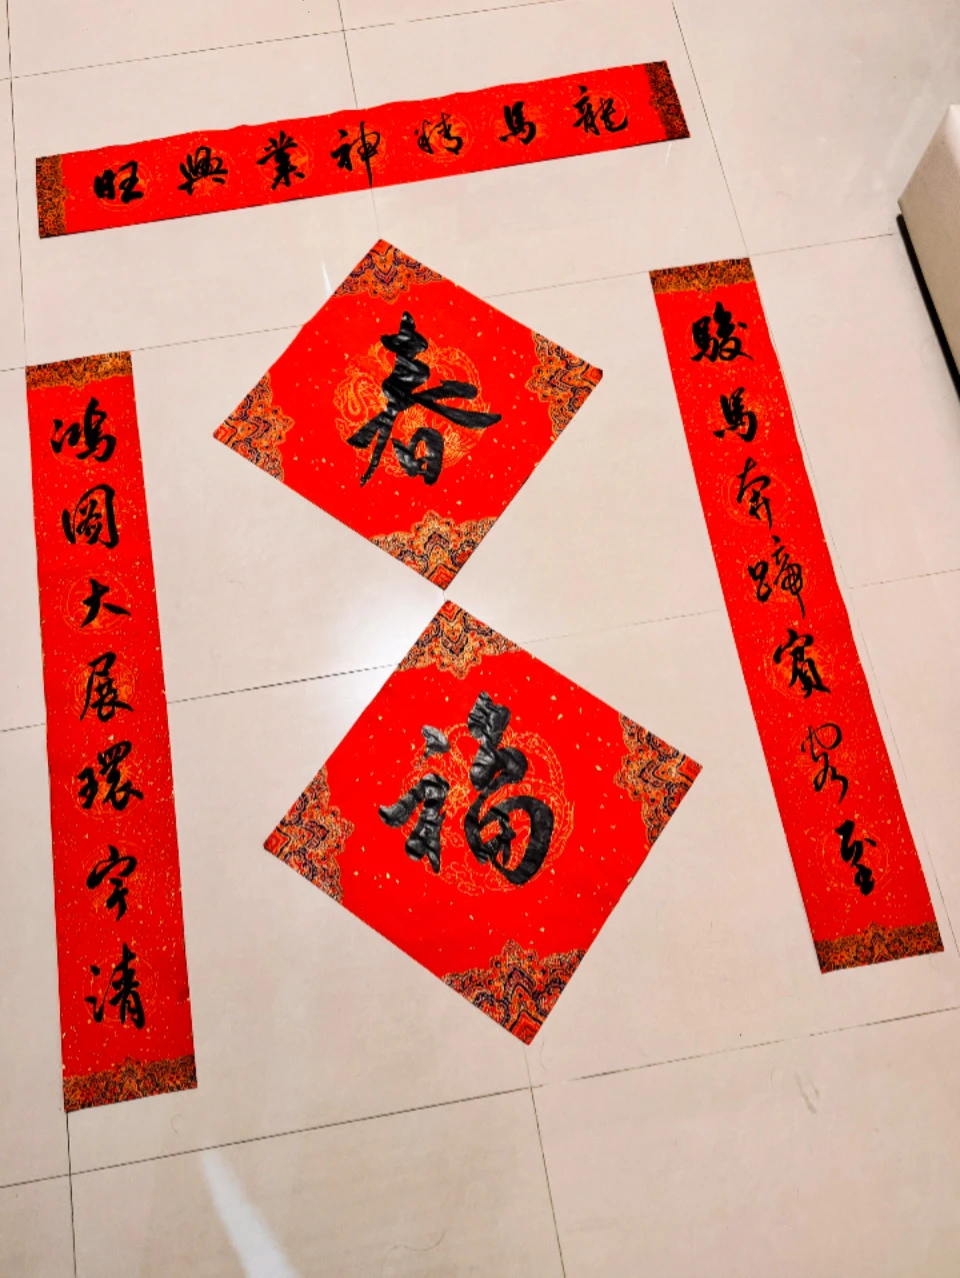 龍馬精神業興旺
駿馬奔蹄賓客至
鴻圖大展環宇清
春
福